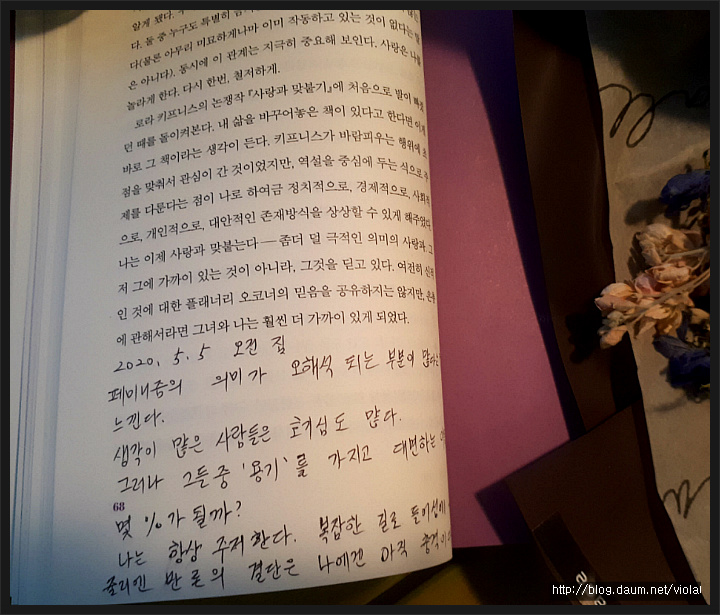 알게 됐다.
다. 둘 중 누구도 특별히
다(물론 아무리 미묘하게나마 이미 작동하고 있는 것이 없다는 말
은 아니다). 동시에 이 관계는 지극히 중요해 보인다. 사랑은 나를
놀라게 한다. 다시 한번, 철저하게.
로라 키프니스의 논쟁작 『사랑과 맞붙기』에 처음으로 발이 빠졌
던 때를 돌이켜본다. 내 삶을 바꾸어놓은 책이 있다고 한다면 이게
바로 그 책이라는 생각이 든다. 키프니스가 바람피우는 행위에 초
점을 맞춰서 관심이 간 것이었지만, 역설을 중심에 두는 식으로 주
제를 다룬다는 점이 나로 하여금 정치적으로, 경제적으로, 사회적
으로, 개인적으로, 대안적인 존재방식을 상상할 수 있게 해주었다.
나는 이제 사랑과 맞붙는다—좀더 덜 극적인 의미의 사랑과. 그
저 그에 가까이 있는 것이 아니라, 그것을 딛고 있다. 여전히 신적
인 것에 대한 플래너리 오코너의 믿음을 공유하지는 않지만, 은총
에 관해서라면 그녀와 나는 훨씬 더 가까이 있게 되었다.
2020. 5. 5 오전 집
페미니즘의 의미가 오해석 되는 부분이 많다는
느낀다.
생각이 많은 사람들은 호기심도 많다.
그러나 그들중 '용기'를 가지고 대면하는
68
몇 %가 될까?
나는 항상 주저한다. 복잡한 길로 들어섬에
줄리엔 반 룬의 결단은 나에겐 아직 충격이
http://blog.daum.net/violai